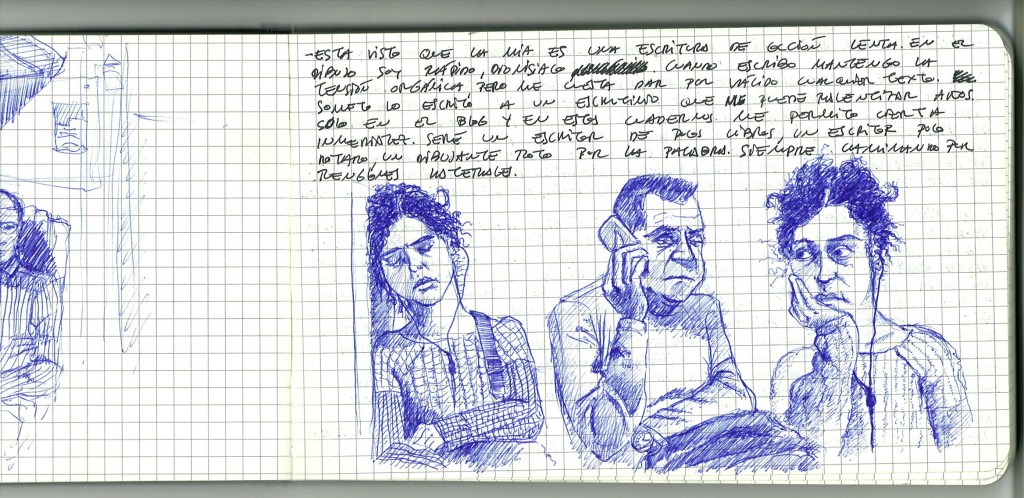 -ESTA VISTO QUE LA MIA ES UNA ESCRITURA DE COCCIÓN LENTA. EN EL
DIBUJO SOY RÁPIDO, DIONISIACO CUANDO ESCRIBO MANTENGO LA
TENSIÓN ORGÁNICA PERO ME CUESTA DAR POR VÁLIDO CUALQUIER TEXTO.
SOMETO LO ESCRITO A UN ESCRUTINIO QUE ME PUEDE RALENTIZAR AÑOS.
SÓLO EN EL BLOG Y EN ESTOS CUADERNOS ME PERMITO CIERTA
INMEDIATEZ. SERÉ UN ESCRITOR DE POCOS LIBROS, UN ESCRITOR POCO
NOTARIO, UN DIBUJANTE ROTO POR LA PALABRA. SIEMPRE CAMINANDO POR
RENGLONES LATERALES.